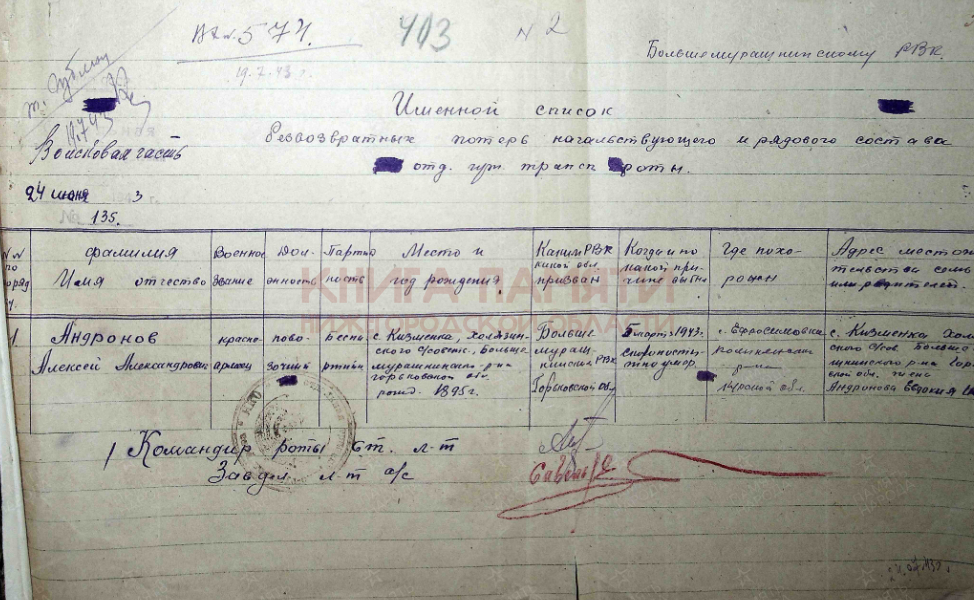 Вх. № 574.
19.7.43 г.
403
N 2
Большемурашкинскому РВК.
19.7.43
Войсковая часть
24 июня 3
№ 135.
Именной список
безвозвратных потерь начальствующего и рядового состава
отд. гуж. трансп роты.
N N по поряд у.
фамилия Имя отчество
Военное звание
Дол-жность
Партийность
Место и год рождения.
Каким РВК какой обл. призван
Когда и по какой при-чине выбы
Где похо-ронен
Адрес местож тельства семь или родителей.
1 Андронов Алексей Александрович
красно-армеец
пово-зочный
беспа-ртийн
с. Кизменка, Холязин-ского с/совета, Больше мурашкинского р-на, горьковской обл. рожд. 1895 г.
Больше мураш-кинский РВК Горьковской об
5 марта 1943 г. скоропости-жно умер.
с. Ефросимовка Курской обл.
с. Кизменка Хол ского с/сов. Больше- шкинского р-на Горь ской обл. жена Андронова Евдокия
КНИГА ПАМЯТИ
НИЖЕГОРОДСКОЙ ОБЛАСТИ
Командир роты Ст. л-т
Завдел л-т а/с